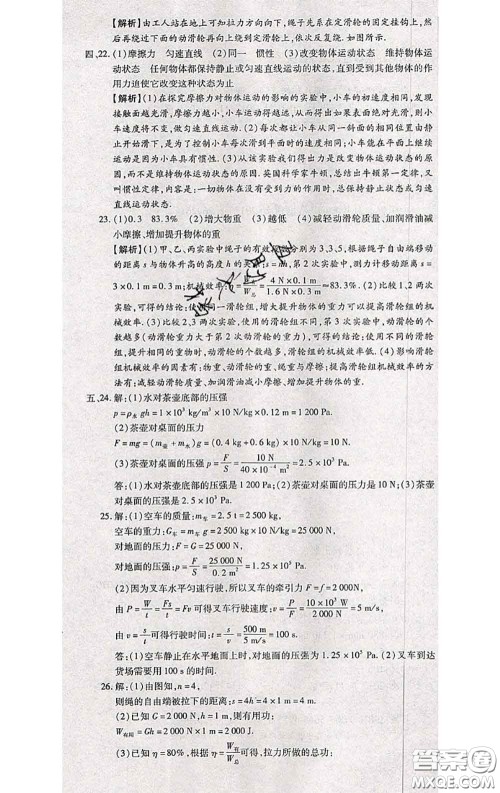 【解析】由工人站在地下可知拉力方向向下,绳子先系在定滑轮的固定挂钩上,然
后再绕过下面的动滑轮再向上绕到定滑轮上,依次反复绕.如图所示.
四、22. (1)摩擦力 匀速直线 (2)同一 惯性 (3)改变物体运动状态 维持物体运
动状态 任何物体都保持静止或匀速直线运动的状态,直到受到其他物体的作
用力迫使它改变这种状态为止
【解析】(1)在探究摩擦力对物体运动的影响的实验中,小车的初速度相同,发现
接触面越光滑,摩擦力越小,小车运动得越远,从而得出如果表面绝对光滑,则小
车将不受摩擦力,做匀速直线运动.(2)每次都让小车从同一斜面的相同位置由静
止开始滑下,是为了控制小车每次滑到平面时的速度相等.小车能在平面上继续
运动是因为小车具有惯性.(3)从该实验我们得出力是改变物体运动状态的原
因,而不是维持物体运动状态的原因.英国科学家牛顿,总结出牛顿第一定律,又
叫惯性定律,内容是:一切物体在没有受到力的作用时,总保持静止状态或匀速
直线运动状态.
23. (1)0.3 83.3% (2)增大物重 (3)越低 (4)减轻动滑轮质量、加润滑油减
小摩擦、增加提升物体的重
【解析】(1)甲、乙、丙实验中绳子的有效 分别为3、3、5,根据绳子自由端移动
的距离 s 与物体升高的高度 h 的关系:s= ,第2次实验中,测力计移动距离 s=
3×0.1 m=0.3 m;机械效率:η=W有/W总=4 N×0.1 m/1.6 N×0.3 m≈83.3%.(2)比较1、2两次
实验,可得的结论:使用同一滑轮组,增大提升物体的重力可以提高滑轮组的机
械效率.(3)比较2、3两次实验,使用的滑轮组不同,第3次实验中,动滑轮的个
数越多(动滑轮重力大于第2次动滑轮的重力),可得的结论:使用不同的滑轮
组,提升相同的重物时,动滑轮的个数越多,滑轮组的机械效率越低.(4)影响滑轮
机械效率的因素有:物重、动滑轮的重、绳重与摩擦.提高滑轮组机械效率的方
法有:减轻动滑轮质量、加润滑油减小摩擦、增加提升物体的重.
五、24. 解:(1)水对茶壶底部的压强
p=ρ水gh=1×10³ kg/m³×10 N/kg×0.12 m=1 200 Pa.
(2)茶壶对桌面的压力
F=mg=(m壶+m水)g=(0.4 kg+0.6 kg)×10 N/kg=10 N.
(3)茶壶对桌面的压强 p=F/S=10 N/40×10⁻⁴ m²=2.5×10³ Pa.
答:(1)水对茶壶底部的压强是1 200 Pa;(2)茶壶对桌面的压力是10 N;(3)茶
壶对桌面的压强是2.5×10³ Pa.
25. 解:(1)空车的质量:m车=2.5 t=2 500 kg,
空车的重力:G车=m车g=2 500 kg×10 N/kg=25 000 N,
对地面的压力:F=G=25 000 N,
对地面的压强:p=F/S=25 000 N/0.2 m²=1.25×10⁵ Pa.
(2)因为叉车水平匀速行驶,所以叉车的牵引力 F=f=2 000 N,
由 P=W/t=Fs/t=Fv 可得叉车行驶速度:v=P/F=10×10³ W/2 000 N=5 m/s,
由 v=s/t 可得行驶时间:t=s/v=500 m/5 m/s=100 s.
答:(1)空车静止在水平地面上时,对地面的压强是1.25×10⁵ Pa.(2)叉车到达
货场需要用100 s的时间.
26. 解:(1)由图知,n=4,
则绳的自由端被拉下的距离:s=4h=4×1 m=4 m.
(2)已知 G=2 000 N,h=1 m,则有用功:
W有用=Gh=2 000 N×1 m=2 000 J.
(3)已知 η=80%,根据 η=W有/W总可得,拉力所做的总功: